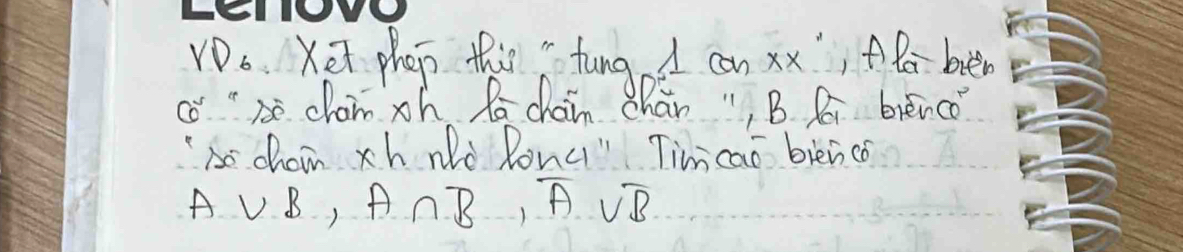 Lenovo
VD6. Xét phép thử "tung 1 con xx", A là biến
cố "số chấm xh là chấm chẵn", B là biến cố
"số chấm xh nhỏ hơn 4". Tìm các biến cố
A ∪ B, A ∩ B, A̅ ∪ B̅